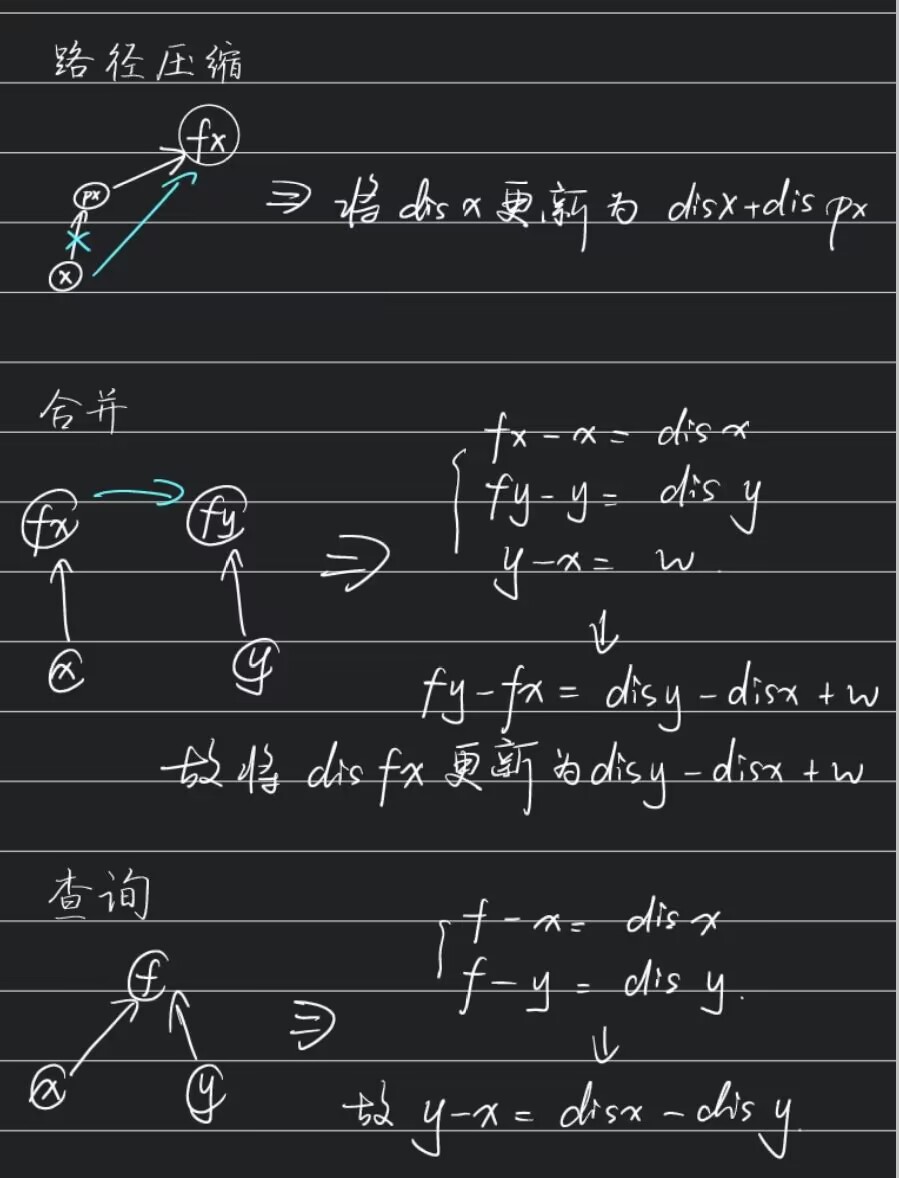 路径压缩
fx
px
x
⇒ 将 dis x 更新为 disx+dis px
合并
fx - x = dis x
fy - y = dis y
y - x = w.
fx → fy ⇒
x y
↓
fy - fx = disy - disx + w
故将 dis fx 更新为 disy - disx + w
查询
f - x = dis x
f - y = dis y.
f
⇒
↓
x y
故 y - x = disx - dis y.